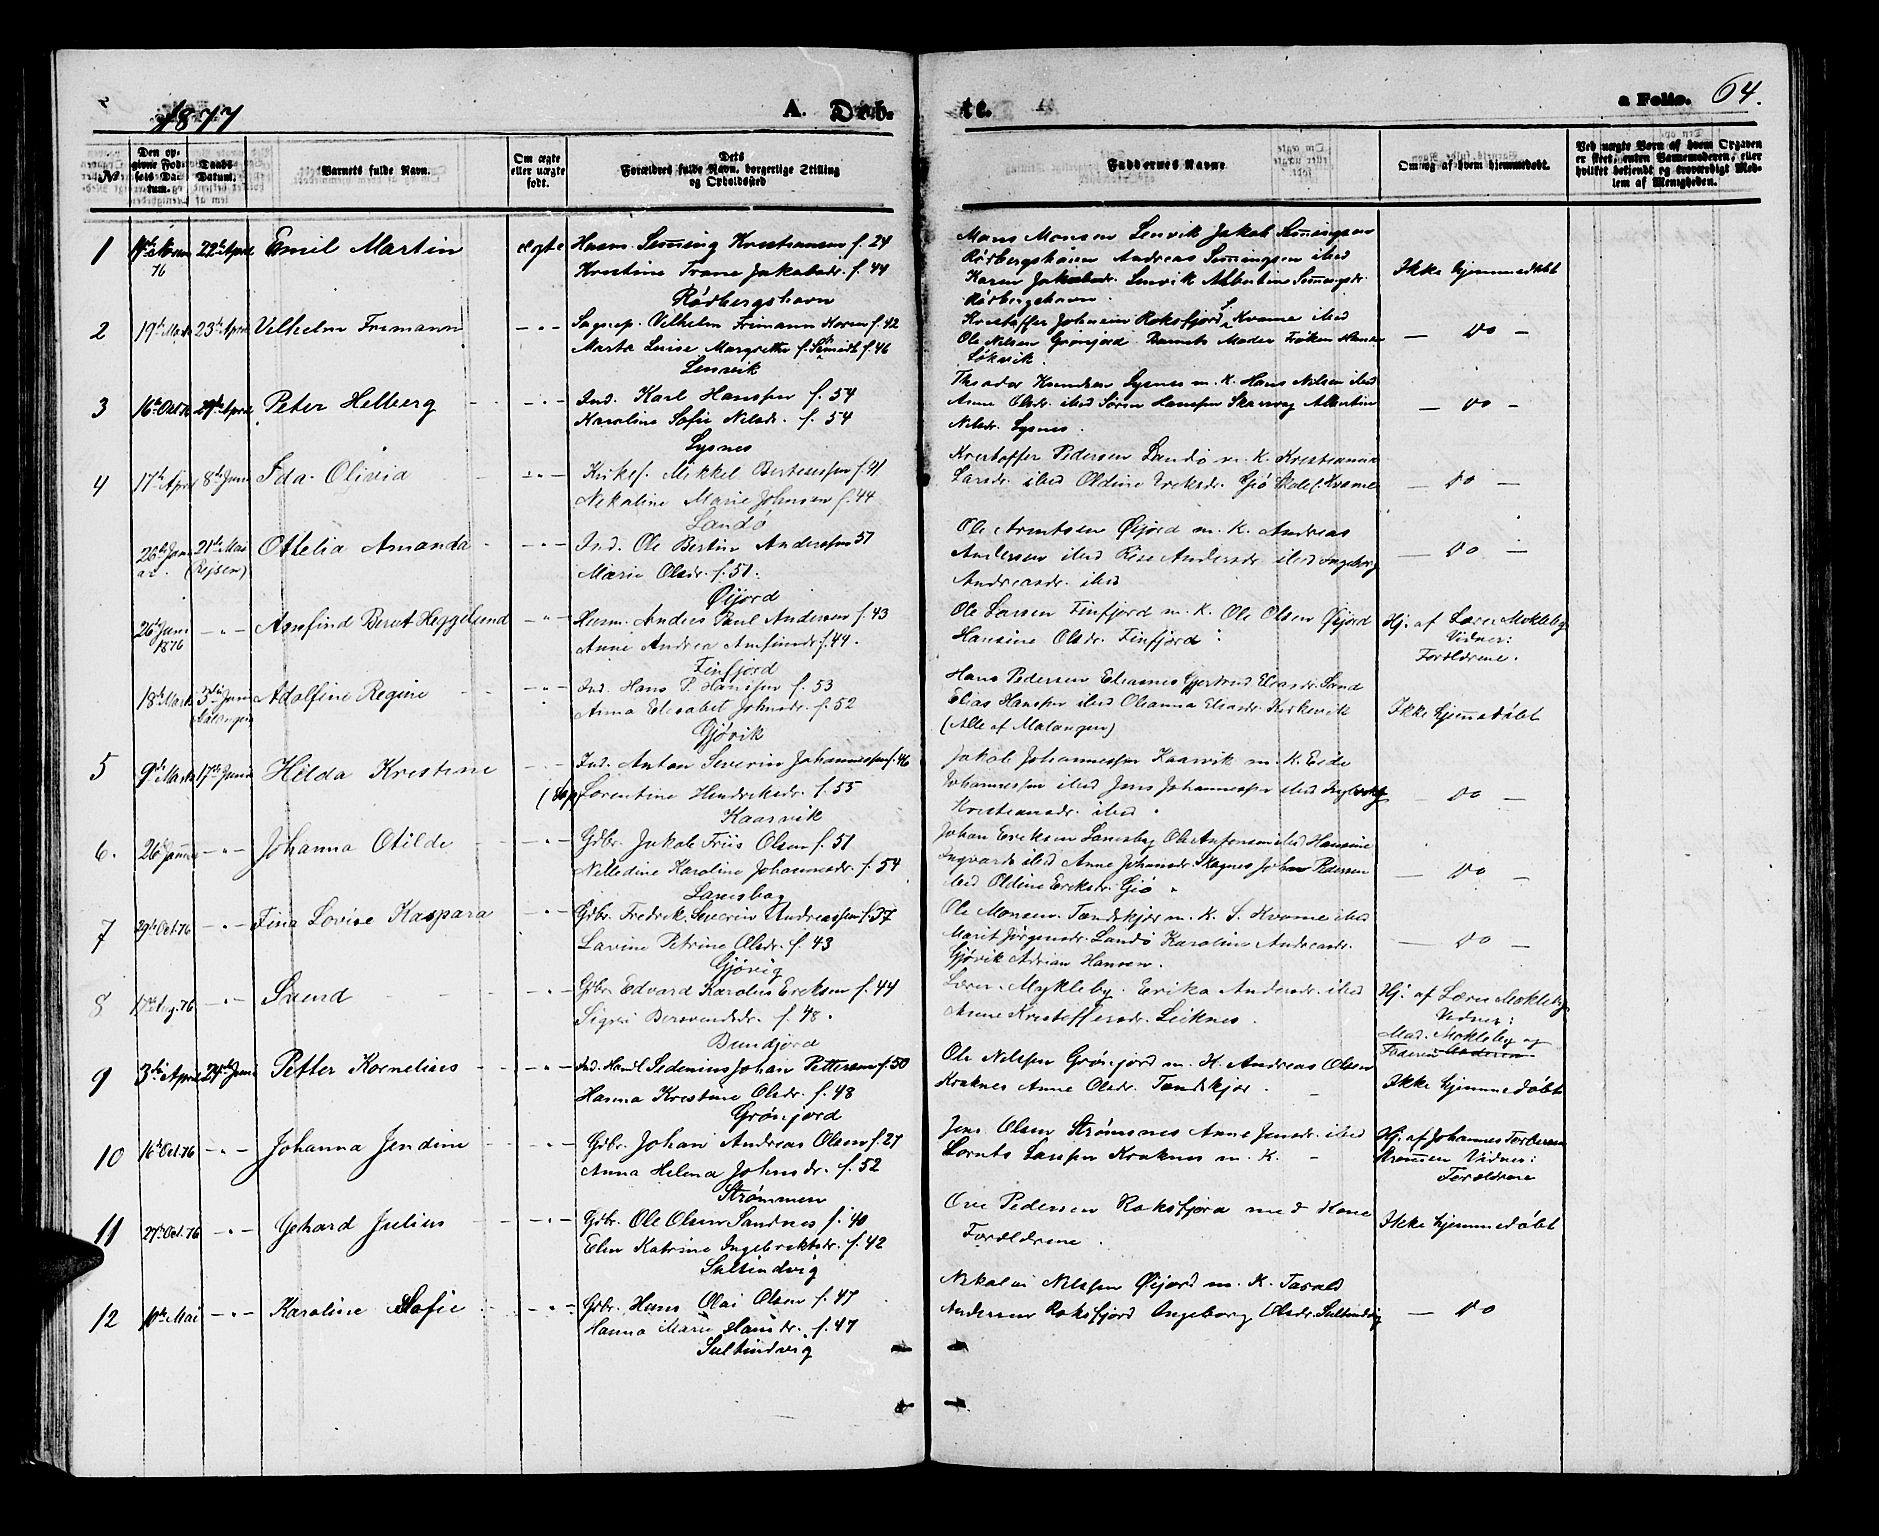 1877
A. Døb-
te.
a Folio. 64.
№
Den opgivne Fødsels Datum.
Daabs Datum.
Barnets fulde Navn.
Om ægte eller uægte født.
Dets Forældres fulde Navn, borgerlige Stilling og Opholdssted
Faddernes Navne
Om og af hvem hjemmedøbt.
Ved uægte Børn af hvem Opgaven er skeet, enten Barnemoderen, eller hvilket bekjendt og troværdigt Medlem af Menigheden.
1 76 22de April Emil Martin ægte Husm. Kristiansen f. 24
Kristine Trane Jakobsdr. f. 44
Rödbergshavn
Mons Monsen Lenvik Jakob
Andreas ibid
Karen Jakobsdr. Lenvik Albertine
Rödbergshavn
Ikke hjemmedöbt
2 19de Marts 23de April Vilhelm Frimann – " – Vilhelm Frimann f. 42
Marta Luise Margrethe f. f. 46
Lenvik
Kristoffer Johnsen Roksfjord Kvame ibid
Ole Nilsen Grönjord Barnets Moder Fröken
— Do —
3 16de Oct 76 29de April Peter Helberg – " – Ind. Karl Hanssen f. 54
Karoline Sofie Nilsdr. f. 54
Lysnes
Theodor Knudsen Lysnes m. K. Hans Nilsen ibid
Anne Olsdr. ibid Sören Hanssen Albertine
Nilsdr. Lysnes.
— Do —
4 17de April 8de Juni Ida Olivia – " – Kirkes. Mikkel f. 41
Nikoline Marie Johnsen f. 44
Sandö
Kristoffer Pedersen Sandö m. K.
Larsdr. ibid Oldine Eriksdr. Gjö Skolel. Kvame
— Do —
26de Januar 21de Mai (Rejsen) Ottelia Amanda – " – Ind. Ole Bertin Anderssen 57
Marie Olsdr. f. 51.
Öijord
Ole Arntsen Öijord m. K. Andreas
Andersen ibid Andersdr. ibid Ingeborg
Andreasdr. ibid
— Do —
26de Juni 1876 – " – Arnfind Beret Heggelund – " – Husm. Andreas Paul Andersen f. 43
Anne Andrea f. 44.
Finfjord
Ole Larsen Finfjord m. K. Ole Olsen Öijord
Hansine Olsdr. Finfjord
Hj. af Lærer Mokleby
Vidner:
Forældrene.
18de Marts 3die Juni Malangen Adolfine Regine – " – Ind. Hans P. Hanssen f. 53
Anna Elisabet Johnsdr. f. 52
Gjövik
Hans Pedersen Gjertrud Eliasdr. Sand
Elias Hanssen ibid Oleanna Eliasdr. Kirkevik
(Alle af Malangen)
Ikke hjemmedöbt
5 9de Marts 17de Juni Hilda Kristine – " – Ind. Anton Severin Johannessen f. 46
(Lap) Lorentine Hendriksdr. f. 55
Kaarvik
Jakob Johannessen Kaarvik m. K. Eide
Johannessen ibid Jens Johannessen ibid Ingeborg
Kristiansdr. ibid
— Do —
6. 26de – " – Johanna Otilde – " – Gdbr. Jakob Friis Olsen f. 51
Nellidine Karoline Johannesdr. f. 54
Johan Eriksen Ole ibid Hansine
ibid Anne Johansdr. Skognes Johan Pedersen
ibid Oldine Eriksdr. Gjö
— Do —
7 29de Oct. 76 – " – Fina Lovise Kaspara – " – Gdbr. Fredrik Severin Andreassen f. 37
Lavine Petrine Olsdr. f. 43
Gjövig
Ole Monsen Tandskjær m. K. S. Kvame ibid
Marit Jörgensdr. Sandö Karoline Andreasdr.
Gjövik Adrian Hansen.
— Do —
8 Aug. 76 – " – Svend – " – Gdbr. Edvard Karolius Eriksen f. 44
Sigrii f. 48.
Bundjord
Lærer Mykleby Erika Andersdr. ibid
Anne Kristoffersdr. Leiknes.
Hj. af Lærer Mokleby
Vidner:
Mad. Mokleby og
Faderen
9 3die April 24de Juni Petter Kornelius – " – Ind. Handl. Sedenius Johan Pettersen f. 50
Hanna Kristine Olsdr. f. 48
Grönjord
Ole Nilssen Grönjord m. K. Andreas Olsen
Kraknes Anne Olsdr. Tandskjær.
Ikke hjemmedöbt
10 16de Oct. 76 – " – Johanna Jendine – " – Gdbr. Johan Andreas Olsen f. 27
Anna Helena Johnsdr. f. 52
Strömmen
Jens Olsen Strömsnes Anne Jensdr. ibid
Lorents Larsen Kraknes m. K.
Hj. af Johannes
Strömmen Vidner:
Forældrene
11 27de Oct. 76 – " – Gehard Julius – " – Gdbr. Ole Olsen Sandnes f. 40
Elen Katrine Ingebriktsdr. f. 42
Sultindvig
Ove Pedersen Roksfjord med Kone
Forældrene.
Ikke hjemmedöbt
12 10de Mai – " – Karoline Sofie – " – Gdbr. Hans Olai Olsen f. 47
Hanna Marie Hansdr. f. 47
Sultindvig
Nikolai Nilssen Öijord m. K. Tarald
Andersen Roksfjord Ingeborg Olsdr. Sultindvig
— Do